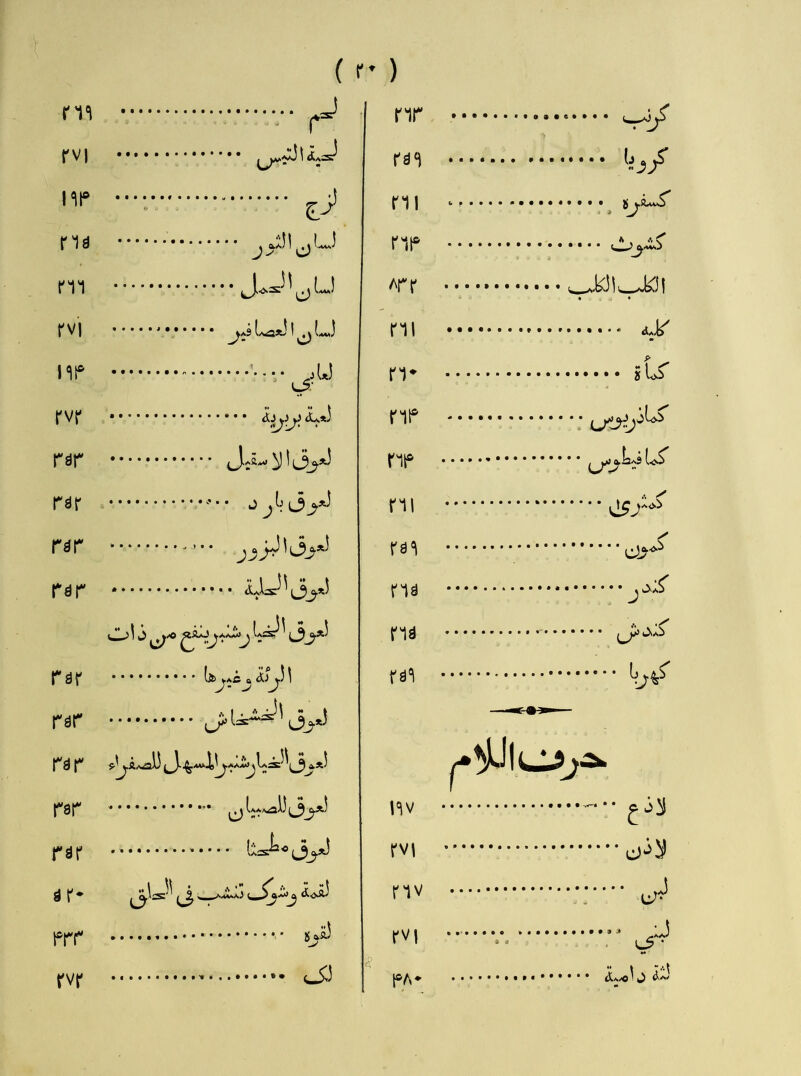 ( ٢٠ )
كرنب ٢٦٣
كرويا ٢٥٩
كسفرة ٢٦١
كشوث ٢٦٤
الكلب الكلب ٨٢٢
كلية ٢٦١
كماة ٢٦٠
كمادريوس ٢٦٤
كمافيطوس ٢٦٤
كمثرى ٢٦١
كمون ٢٥٩
كندر ٢٦٥
كندش ٢٦٥
كهربا ٢٥٩
حرف اللام
لاذع ١٩٧
لاذن ٢٧١
لبن ٢٦٧
لبنى ٢٧١
لثة دامية ٤٨٠
لحم ٢٦٩
لحية التيس ٢٧١
لزج ١٩٤
لسان الثور ٢٦٥
لسان الحمل ٢٦٦
لسان العصافير ٢٧١
لعابي ١٩٤
لعبة بربرية ٢٧٢
لعوق الاسقيل ٢٥٣
لعوق بارد ٢٥٢
لعوق البزور ٢٥٣
لعوق الحلبة ٢٥٣
لعوق الخيارشنبر ينفع من ذات
الرئة وغيرها ٢٥٢
لعوق الخشخاش ٢٥٣
لعوق الخيارشنبر المسهل للصفراء ٢٥٢
لعوق الصبيان ٢٥٣
لعوق ٢٥٢
لقمة وشوك تنشب في الحلق ٥٢٠
لقوة ٤٢٣
لك ٢٧٢